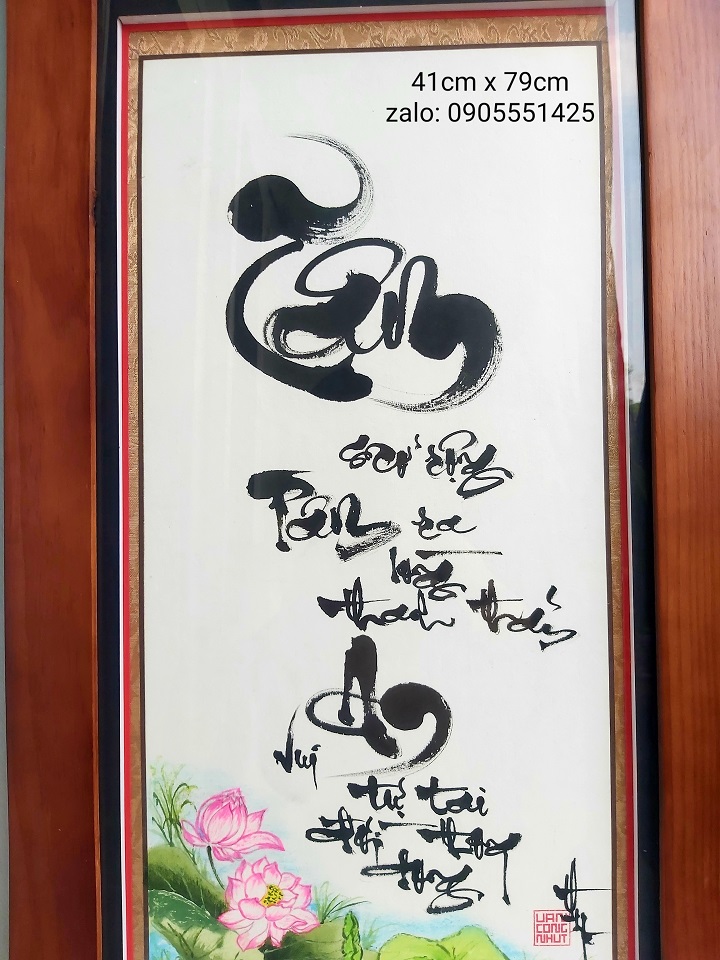 41cm x 79cm
zalo: 0905551425
Tâm
rộng
Tâm ra
lòng
thanh thản
An
vui
tự tại
đời thong
dong
VAN
CONG
NHUT